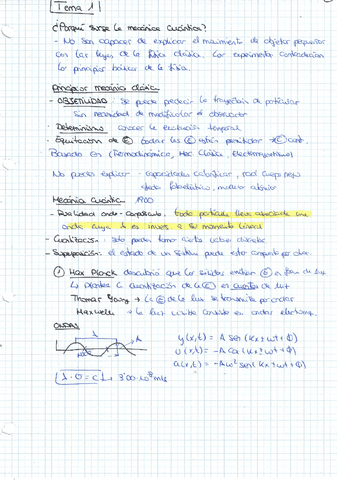 Tema 1
¿Porqué surge la mecánica cuántica?
- No son capaces de explicar el movimiento de objetos pequeños
con las leyes de la física clásica. Los experimentos contradecían
los principios básicos de la física.
Principios mecánica clásica
- OBJETIVIDAD: Se puede predecir la trayectoria de partículas
sin necesidad de modificarlo el observador
- Determinismo: conocer la evolución temporal
- Equipartición de E: todas las E están permitidas → E cont.
Basado en (Termodinámica, Mec Clásica, Electromagnetismo)
No puede explicar: capacidades caloríficas, rad cuerpo negro
efecto fotoeléctrico, modelo atómico
Mecánica Cuántica: 1900
- Dualidad onda-corpúsculo: toda partícula lleva asociada una
onda cuya λ es invers a su momento lineal
- Cuantización: solo pueden tomar ciertos valores
- Superposición: el estado de un sistema puede estar
① Max Planck descubrió que los sólidos emiten E en forma de luz
↳ plantea la cuantización de la E es cuantos de luz
Thomas Young → la E de la luz se transmite por ondas
Maxwell → la luz visible consiste en ondas electromag.
ONDAS
λ
y(x,t) = A sen (kx ± ωt + ϕ)
v(x,t) = -A cos (kx ± ωt + ϕ)
a(x,t) = -Aω² sen (kx ± ωt + ϕ)
λ · υ = c → 3'00·10⁸ m/s